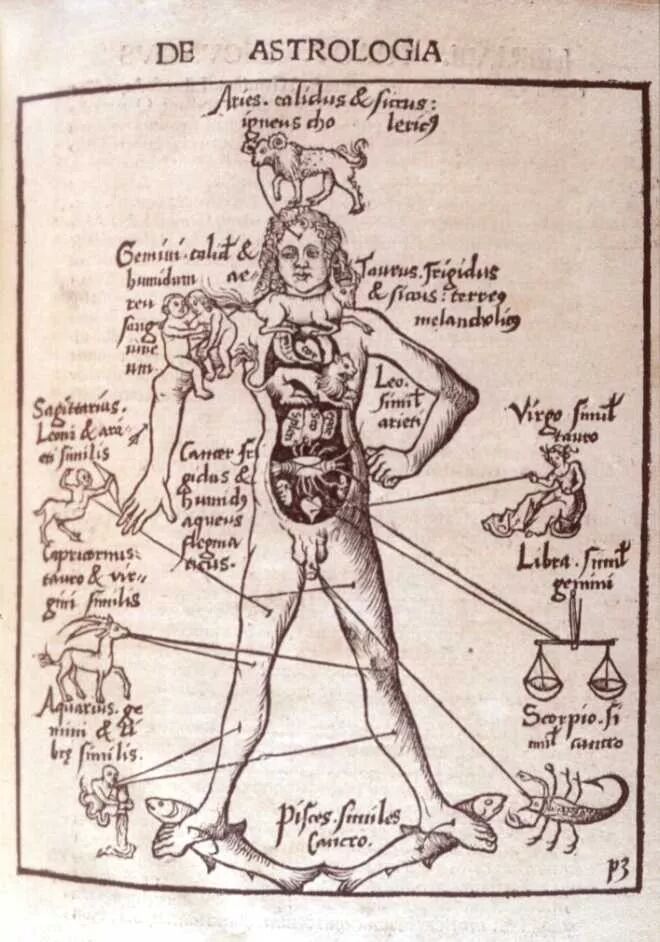 DE ASTROLOGIA
Aries. calidus & siccus:
igneus cho lericꝰ
Gemini. calid' &
humidum ae-
reu
sang
uine
um
Taurus. frigidus
& siccus: terreꝰ
melancholicꝰ
cor
splen
Leo.
simil'
arieti
Sagittarius.
Leoni & ari
eti similis
Cancer fri
gidus &
humidꝰ
aqueus
flegma
ticus.
Virgo simil'
tauro
Capricornus
tauro & vir-
gini similis
Libra. simil'
gemini
Aquarius. ge
mini & li
brę similis.
Scorpio. si
mil' cancro
Pisces. similes
Cancro.
p3